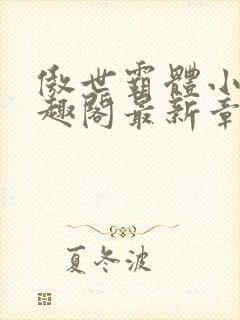 傲世霸體小
趣閣最新章
夏冬波